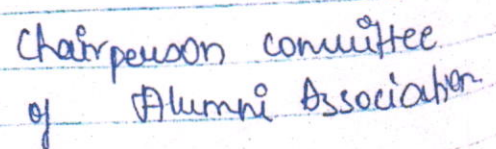 Chairperson committee
of Alumni Association